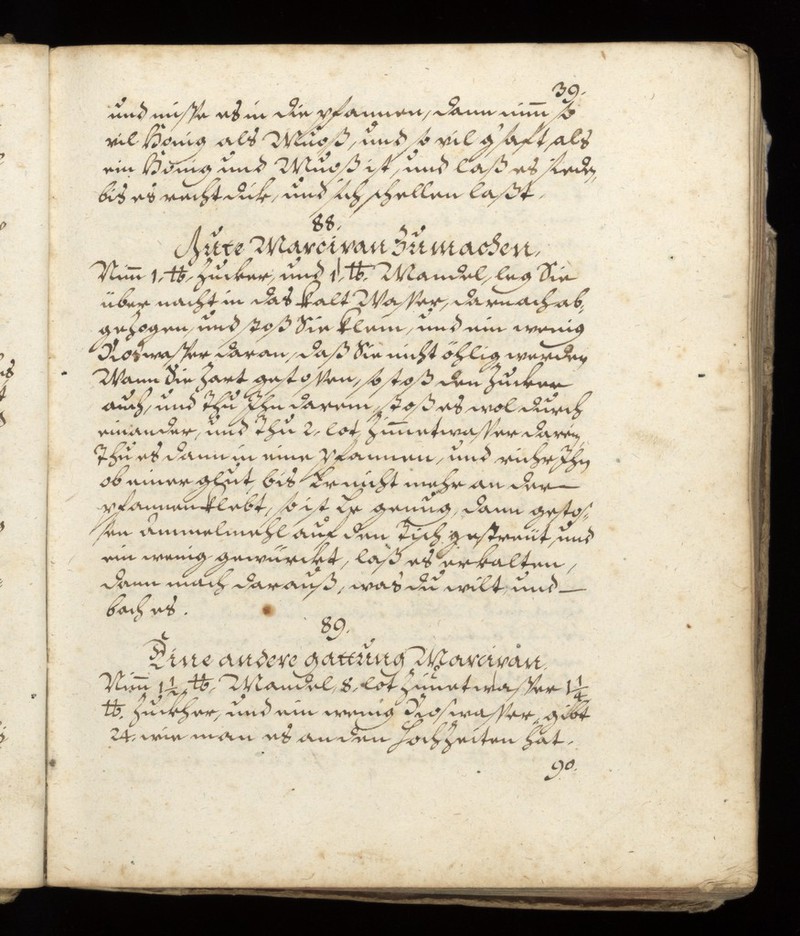 39.
und müsse es in die pfannen, dann nim̄ so
vil Honig als Muoß, und so vil g'safft, als
ein Honig und Muoß ist, und laß es sieden,
bis es recht dick, und sich schellen laßt.
88.
Gute Marcivan Zumachen.
Nim̄ 1. ℔. Zucker, und 1. ℔. Mandel, leg Sie
über nacht in das kalt Wasser, darnach ab-
gezogen, und stoß Sie klein, und ein wenig
Roswasser daran, daß Sie nicht öhlig werden
Wann Sie Zart gestossen, so stoß den Zucker
auch, und Thu Ihn darein, stoß es wol durch
einander, und Thu 2. lot Zim̄etwasser darin,
Thu es dann in eine pfannen, und rühr Ihn
ob einer glut, bis Er nicht mehr an der
pfannen klebt, so ist Er genug, dann gestos-
sen Ammelmehl auf den Tisch gestreut, und
ein wenig gewürckt, laß es erkalten,
dann mach darauß, was du wilt, und
bach es.
89.
Eine andere gattung Marcivan.
Nim̄ 1½ ℔. Mandel, 8. lot Zim̄etwasser 1¼
℔. Zuckher, und ein wenig Roswasser, gibt
24. wie man es an den Hochzeiten hat.
90.